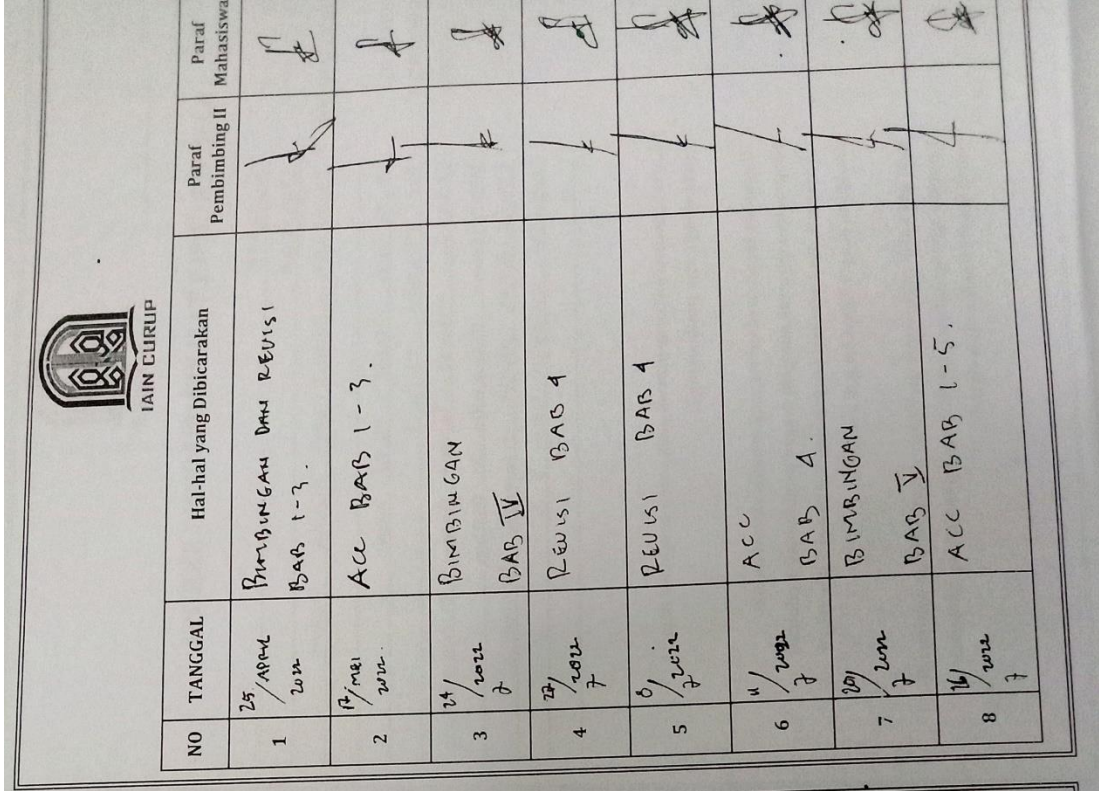 IAIN CURUP
NO TANGGAL Hal-hal yang Dibicarakan Paraf Pembimbing II Paraf Mahasiswa
1 25/APRIL 2022 BIMBINGAN DAN REVISI
BAB 1-3.
2 17/MEI 2022. ACC BAB 1-3.
3 BIMBINGAN
2022 BAB IV
4 2022 REVISI BAB 4
5 2022 REVISI BAB 4
6 ACC
BAB 4.
7 BIMBINGAN
BAB V
8 2022 ACC BAB 1-5.